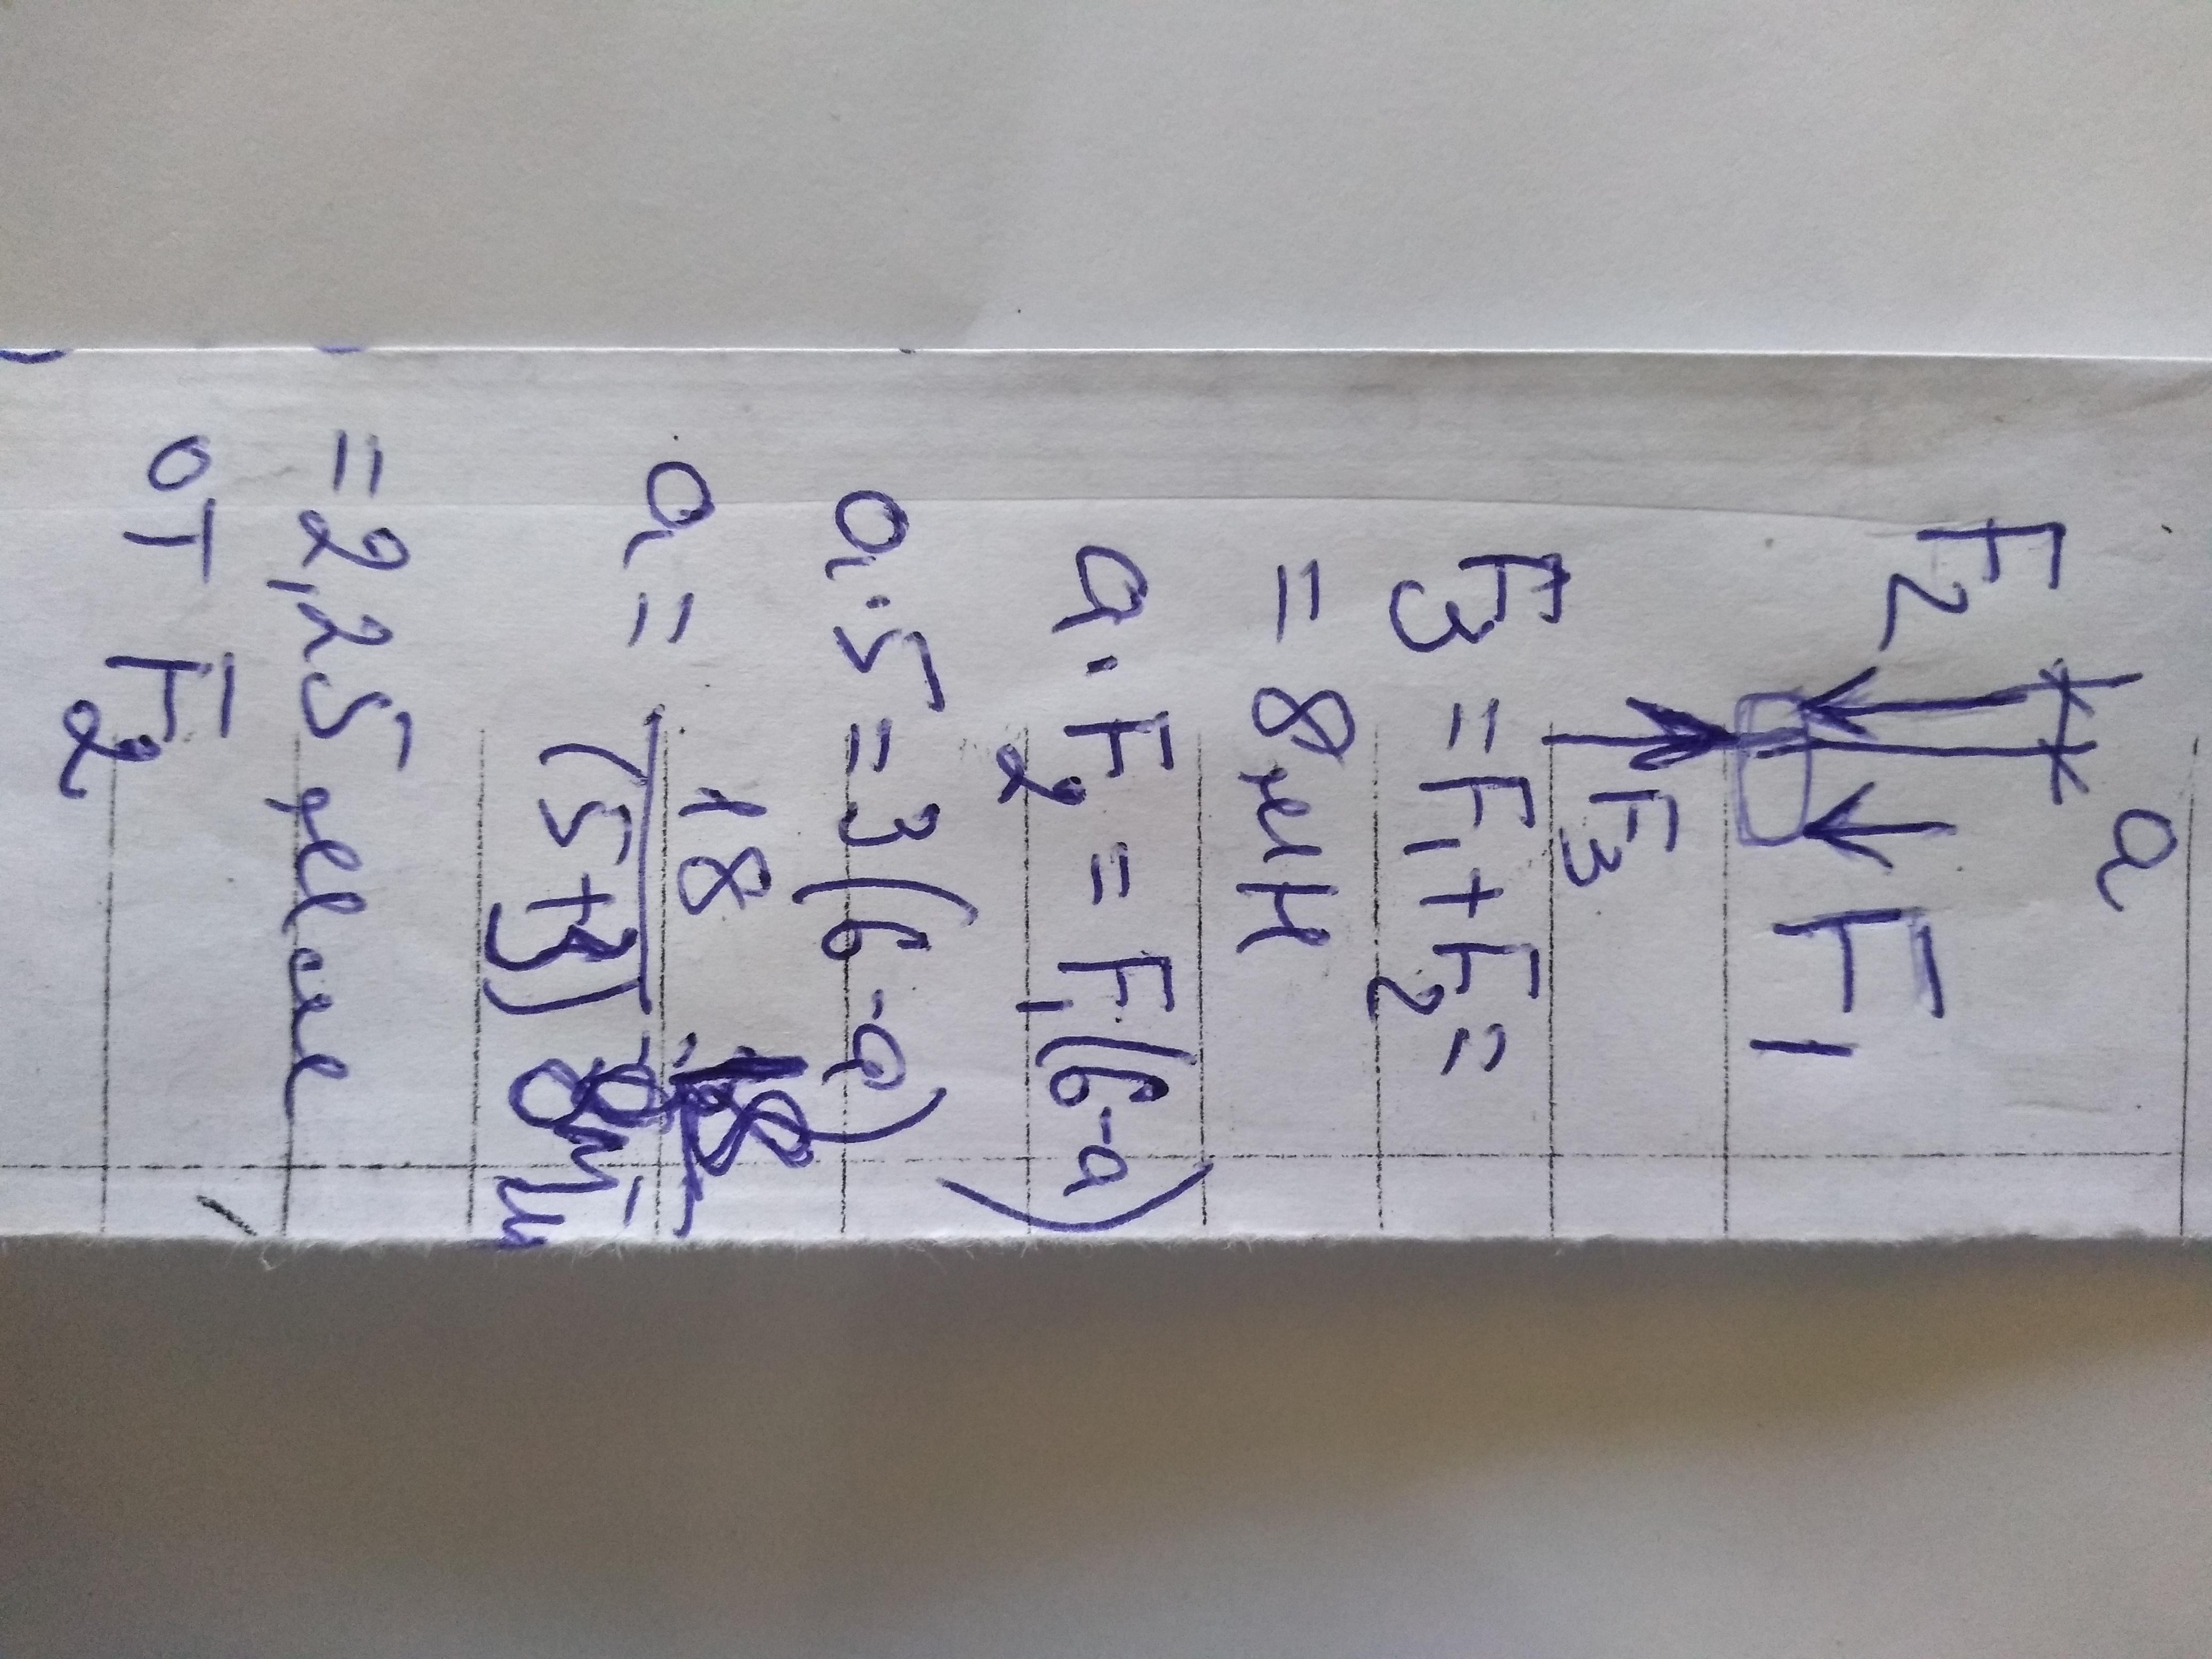 a
F2 F1
F3
F3 = F1 + F2 =
= 8 мН
a · F2 = F1(6-a)
a · 5 = 3(6-a)
a = 18/(5+3)
= 2,25 мм
от F2